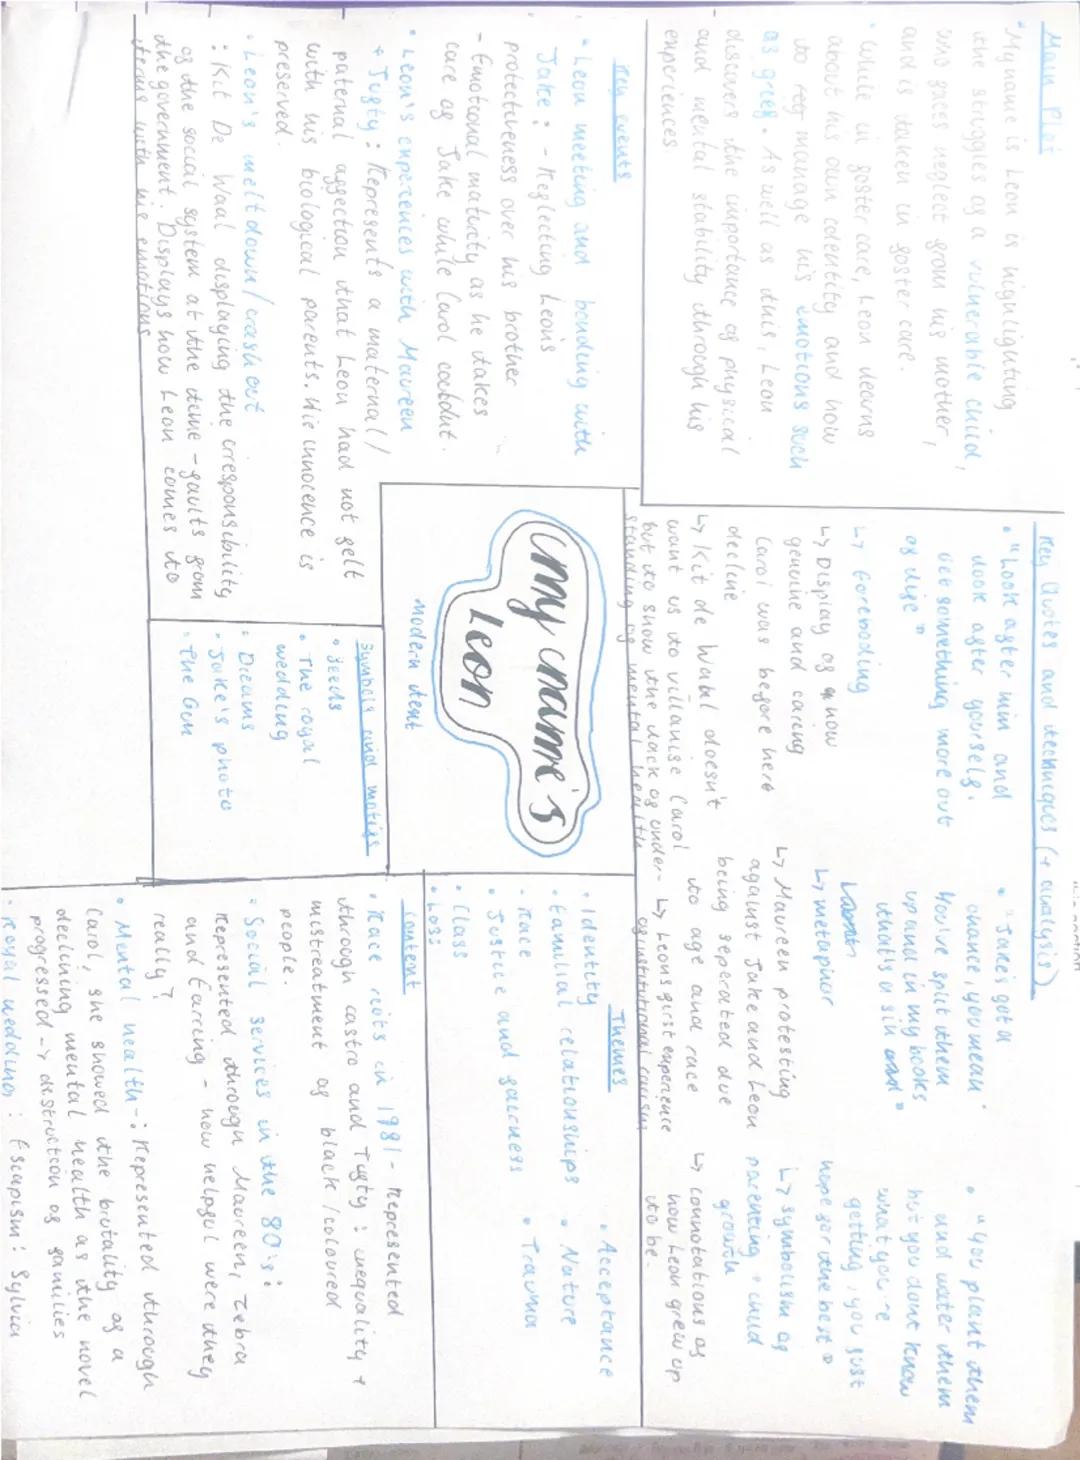 Main Plot
• My name is Leon is highlighting
the struggles of a vulnerable child,
who faces neglect from his mother,
and is taken in foster care.
• while in foster care, Leon learns
about his own identity and how
to manage his emotions such
as grief. As well as this, Leon
discovers the importance of physical
and mental stability through his
experiences.
Key Quotes and techniques (+ analysis)
• "Look after him and
look after yourself.
Get something more out
of life"
↳ Foreboding
↳ Display of how
genuine and caring
Carol was before here
decline
↳ Kit de Waal doesn't
want us to villanise Carol
but to show the lack of under-
standing of mental health
• "Jake's got a
chance, you mean.
You've split them
up and in my books
that's a sin"
↳ metaphor
↳ Maureen protesting
against Jake and Leon
being seperated due
to age and race
↳ Leons first experience
of institutional racism
• "You plant them
and water them
but you dont know
what you're
getting, you just
hope for the best"
↳ symbolism of
parenting + child
growth
↳ connotations of
how Leon grew up
to be.
Key events
• Leon meeting and bonding with
Jake: - Neglecting Leon's
protectiveness over his brother
- Emotional maturity as he takes
care of Jake while Carol
• Leon's experiences with Maureen
+ Tufty: Represents a maternal/
paternal affection that Leon had not felt
with his biological parents. His innocence is
preserved.
• Leon's meltdown/crash out
: Kit De Waal displaying the irresponsibility
of the social system at the time - faults from
the government. Displays how Leon comes to
terms with his emotions
my name's
Leon
Modern text
Symbols and motifs
• Seeds
• The royal
wedding
• Dreams
• Jake's photo
• The Gun
Themes
• Identity
• Familial relationships
• Race
• Justice and fairness
• Class
• Loss
• Acceptance
• Nature
• Trauma
Context
• Race riots in 1981 - represented
through castro and Tufty: inequality +
mistreatment of black/coloured
people.
• Social services in the 80's:
Represented through Maureen, Zebra
and Earring - how helpful were they
really?
• Mental health -: Represented through
Carol, she showed the brutality of a
declining mental health as the novel
progressed -> distruction of families
• Royal wedding: Escapism: Sylvia